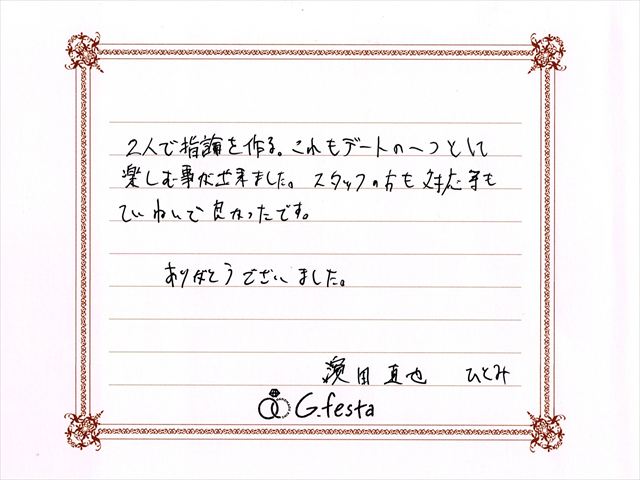 2人で指論を作る。これもデートの一つとして
楽しむ事が出来ました。スタッフの方も対応等も
ていねいで良かったです。
ありがとうございました。
濱田直也 ひとみ
G.festa